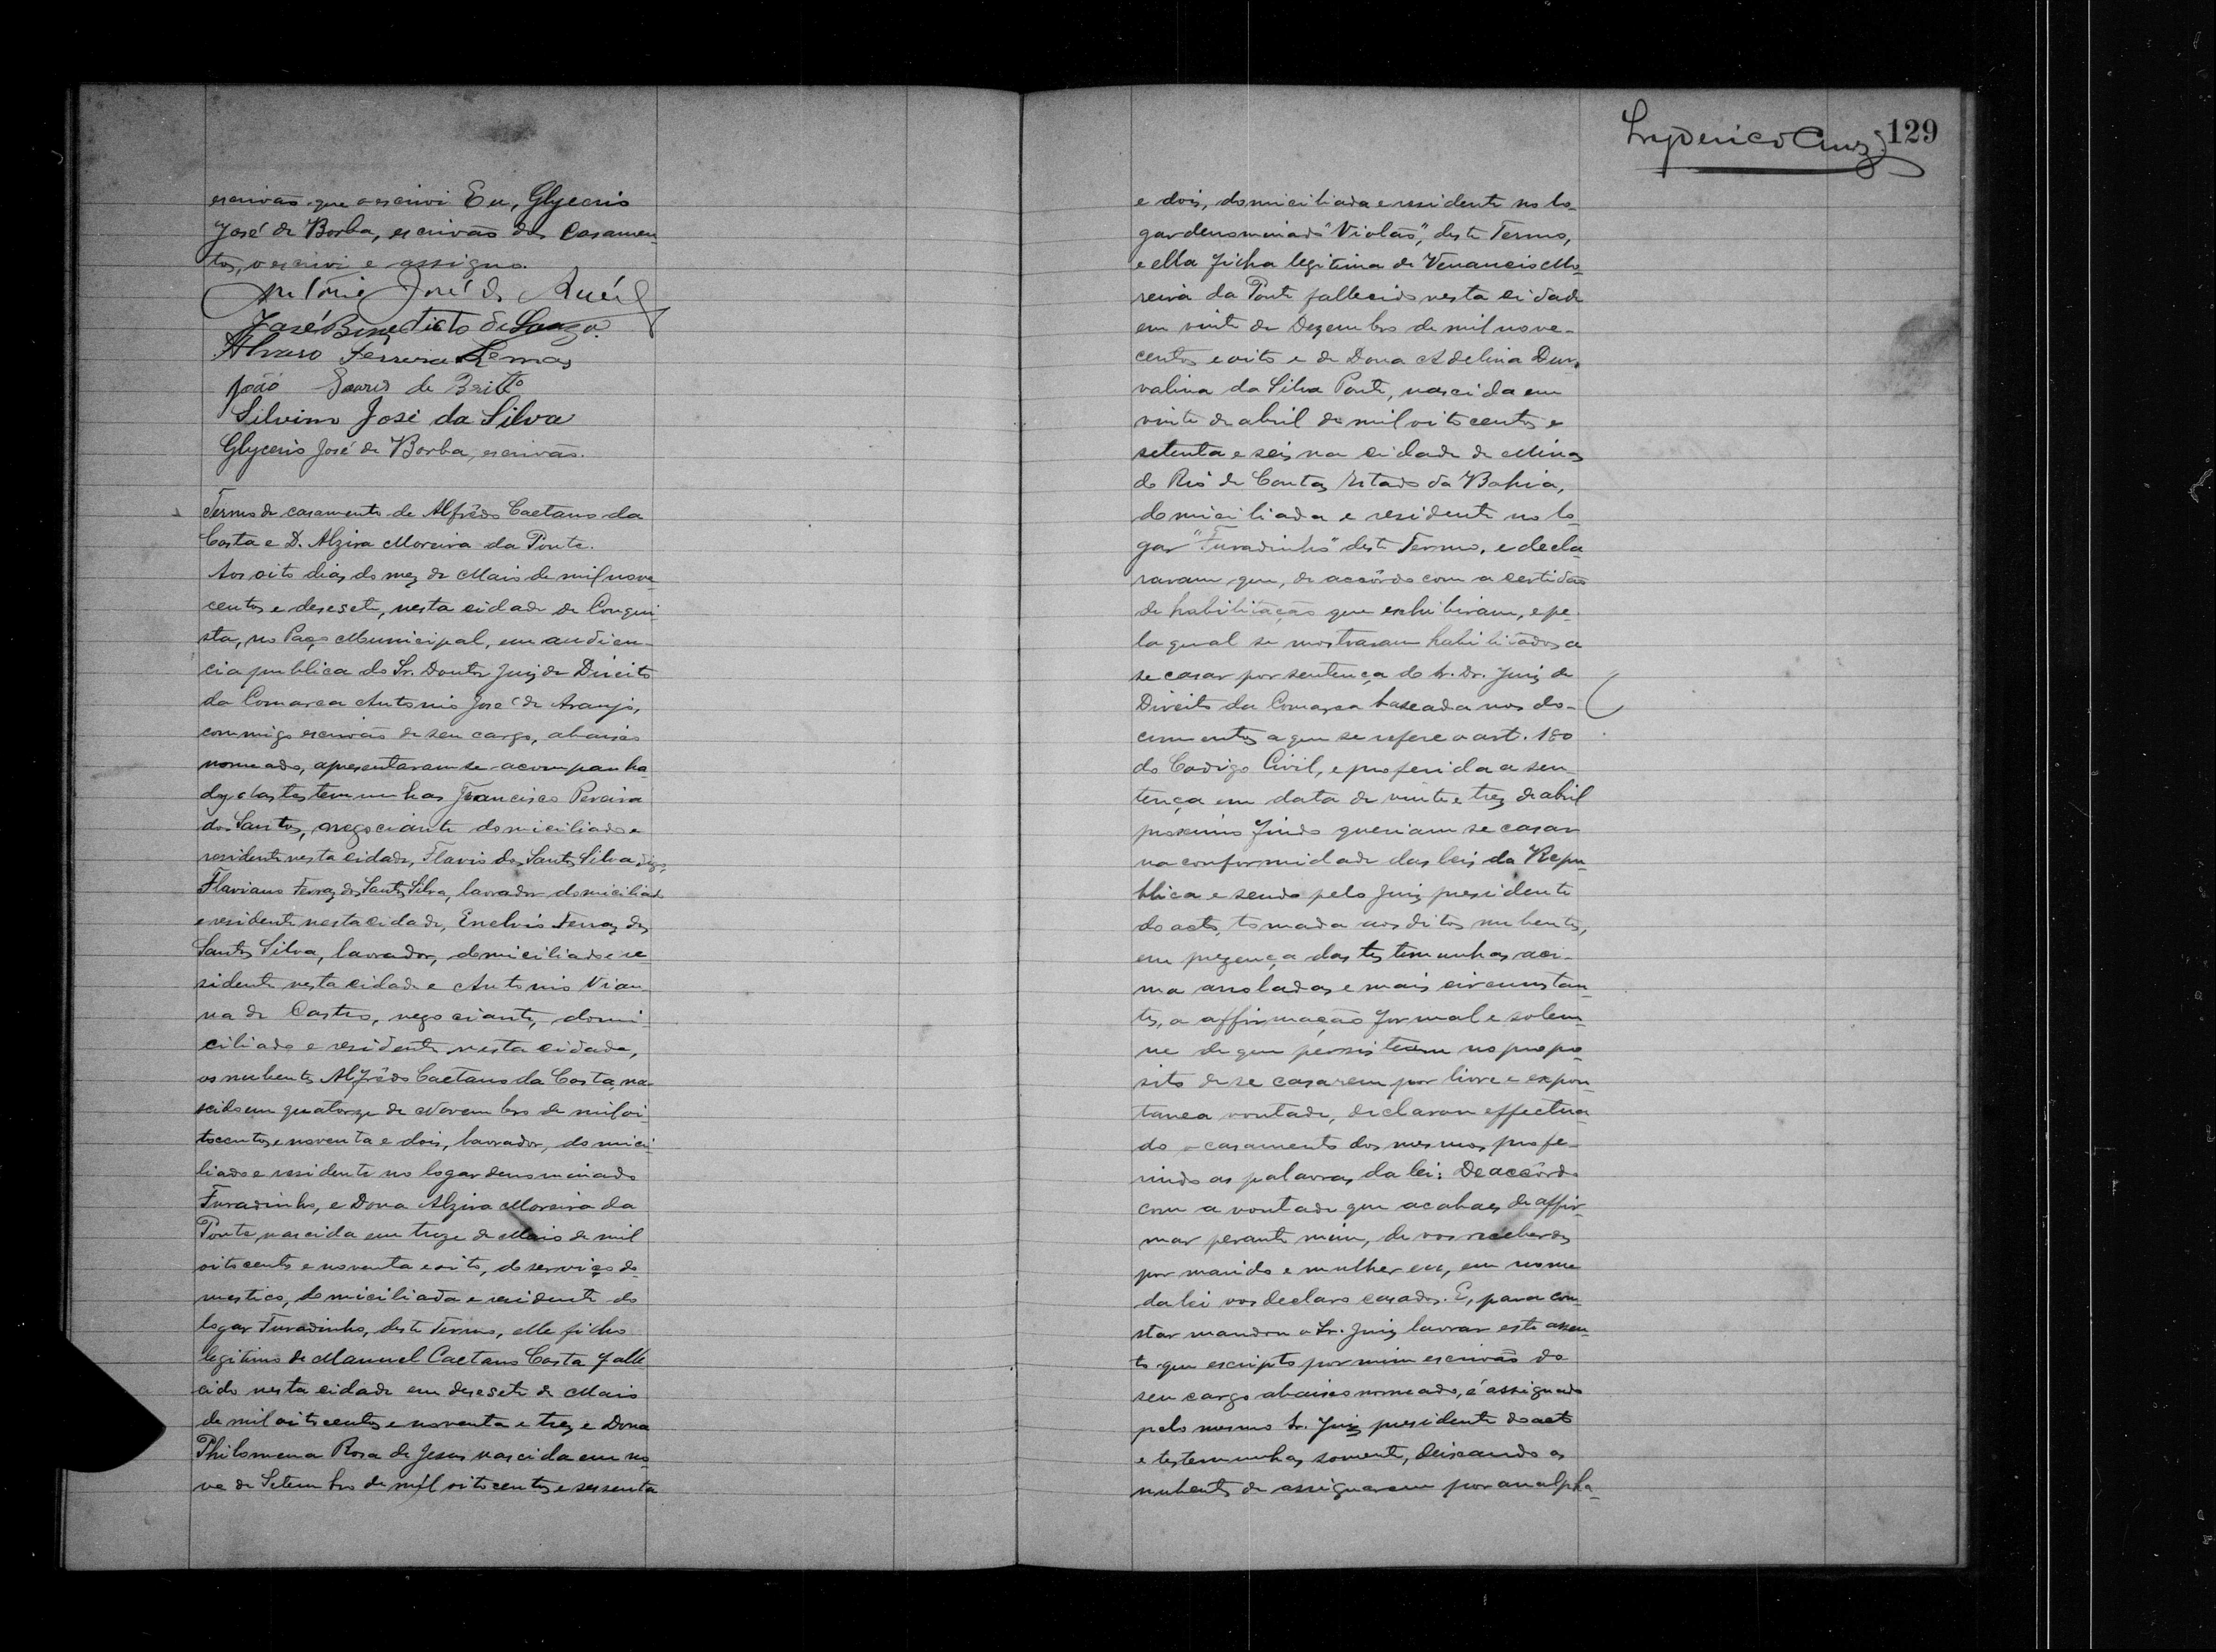 escrivão que o escrivi Eu, Glycerio
José de Borba, escrivão dos Casamen-
tos, o escrivi e assigno.
Antonio José de
José Benedicto de Souza.
Alvaro Ferreira Lemos
João Soares de Britto
Silvino José da Silva
Glycerio José de Borba, escrivão.
Termo de casamento de Alfrêdo Caetano da
Costa e D. Alzira Moreira da Ponte.
Aos oito dias do mez de Maio de mil nove
centos e desesete, nesta cidade de Conqui-
sta, no Paço Municipal, em audien-
cia publica do Sr. Doutor Juiz de Direito
da Comarca Antonio José de Araujo,
commigo escrivão de seu cargo, abaixo
nomeado, apresentaram-se acompanha
dos das testemunhas Francisco Pereira
dos Santos, negociante domiciliado e
residente nesta cidade, Flavio dos Santos Silva digo,
Flaviano Ferraz dos Santos Silva, lavrador domiciliado
e residente nesta cidade, Ferraz dos
Santos Silva, lavrador, domiciliado e re-
sidente nesta cidade e Antonio Vian-
na de Castro, negociante, domi-
ciliado e residente nesta cidade,
os nubentes Alfrêdo Caetano da Costa, na-
scido em quatorze de Novembro de mil oi-
tocentos e noventa e dois, lavrador, domici-
liado e residente no logar denominado
Furadinho, e Dona Alzira Moreira da
Ponte, nascida em treze de Maio de mil
oitocentos e noventa e oito, do serviço do-
mestico, domiciliada e residente do
logar Furadinho, deste Termo, elle filho
legitimo de Manuel Caetano Costa falle
cido nesta cidade em desesete de Maio
de mil oitocentos e noventa e trez e Dona
Philomena Rosa de Jesus nascida em no-
ve de Setembro de mil oitocentos e sessenta
Lyderico Cruz 129
e dois, domiciliada e residente no lo-
gar denominado "Violão", deste Termo,
e ella filha legitima de Venancio Mo-
reira da Ponte fallecido nesta cidade
em vinte de Dezembro de mil nove-
centos e oito e de Dona Adelina Dur-
valina da Silva Ponte, nascida em
vinte de abril de mil oitocentos e
setenta e seis na cidade de Minas
do Rio de Contas Estado da Bahia,
domiciliada e residente no lo-
gar "Furadinho" deste Termo, e decla-
raram que, de accôrdo com a certidão
de habilitação que exhibiram, e pe-
la qual se mostraram habilitados a
se casar por sentença do Sr. Dr. Juiz de
Direito da Comarca baseada nos do-
cumentos a que se refere o art. 180
do Codigo Civil, e proferida a sen-
tença em data de vinte e trez de abril
proximo findo queriam se casar
na conformidade das leis da Repu-
blica e sendo pelo Juiz presidente
do acto, tomada aos ditos nubentes,
em prezença das testemunhas aci-
ma arroladas e mais circumstan-
tes, a affirmação formal e solem-
ne de que persistem no propo-
sito de se casarem por livre e expon-
tanea vontade, declarou effectua-
do o casamento dos mesmos profe-
rindo as palavras da lei: De accôrdo
com a vontade que acabaes de affir-
mar perante mim, de vos receberdes
por marido e mulher eu, em nome
da lei vos declaro casados. E, para con-
star mandou o Sr. Juiz lavrar este assen-
to que escripto por mim escrivão do
seu cargo abaixo nomeado, é assignado
pelo mesmo Sr. Juiz presidente do acto
e testemunhas somente, deixando os
nubentes de assignarem por analpha-